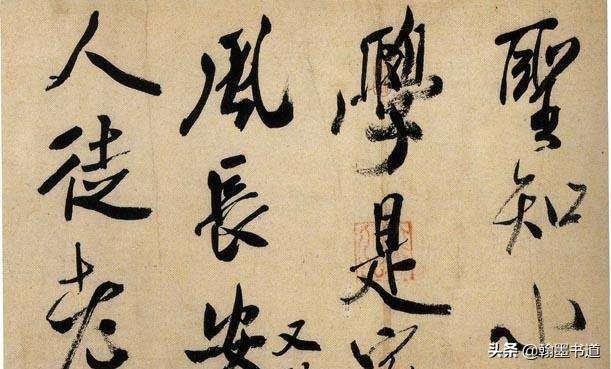 聖知小
學是
風長安
又
人徒老
头条 @翰墨书道